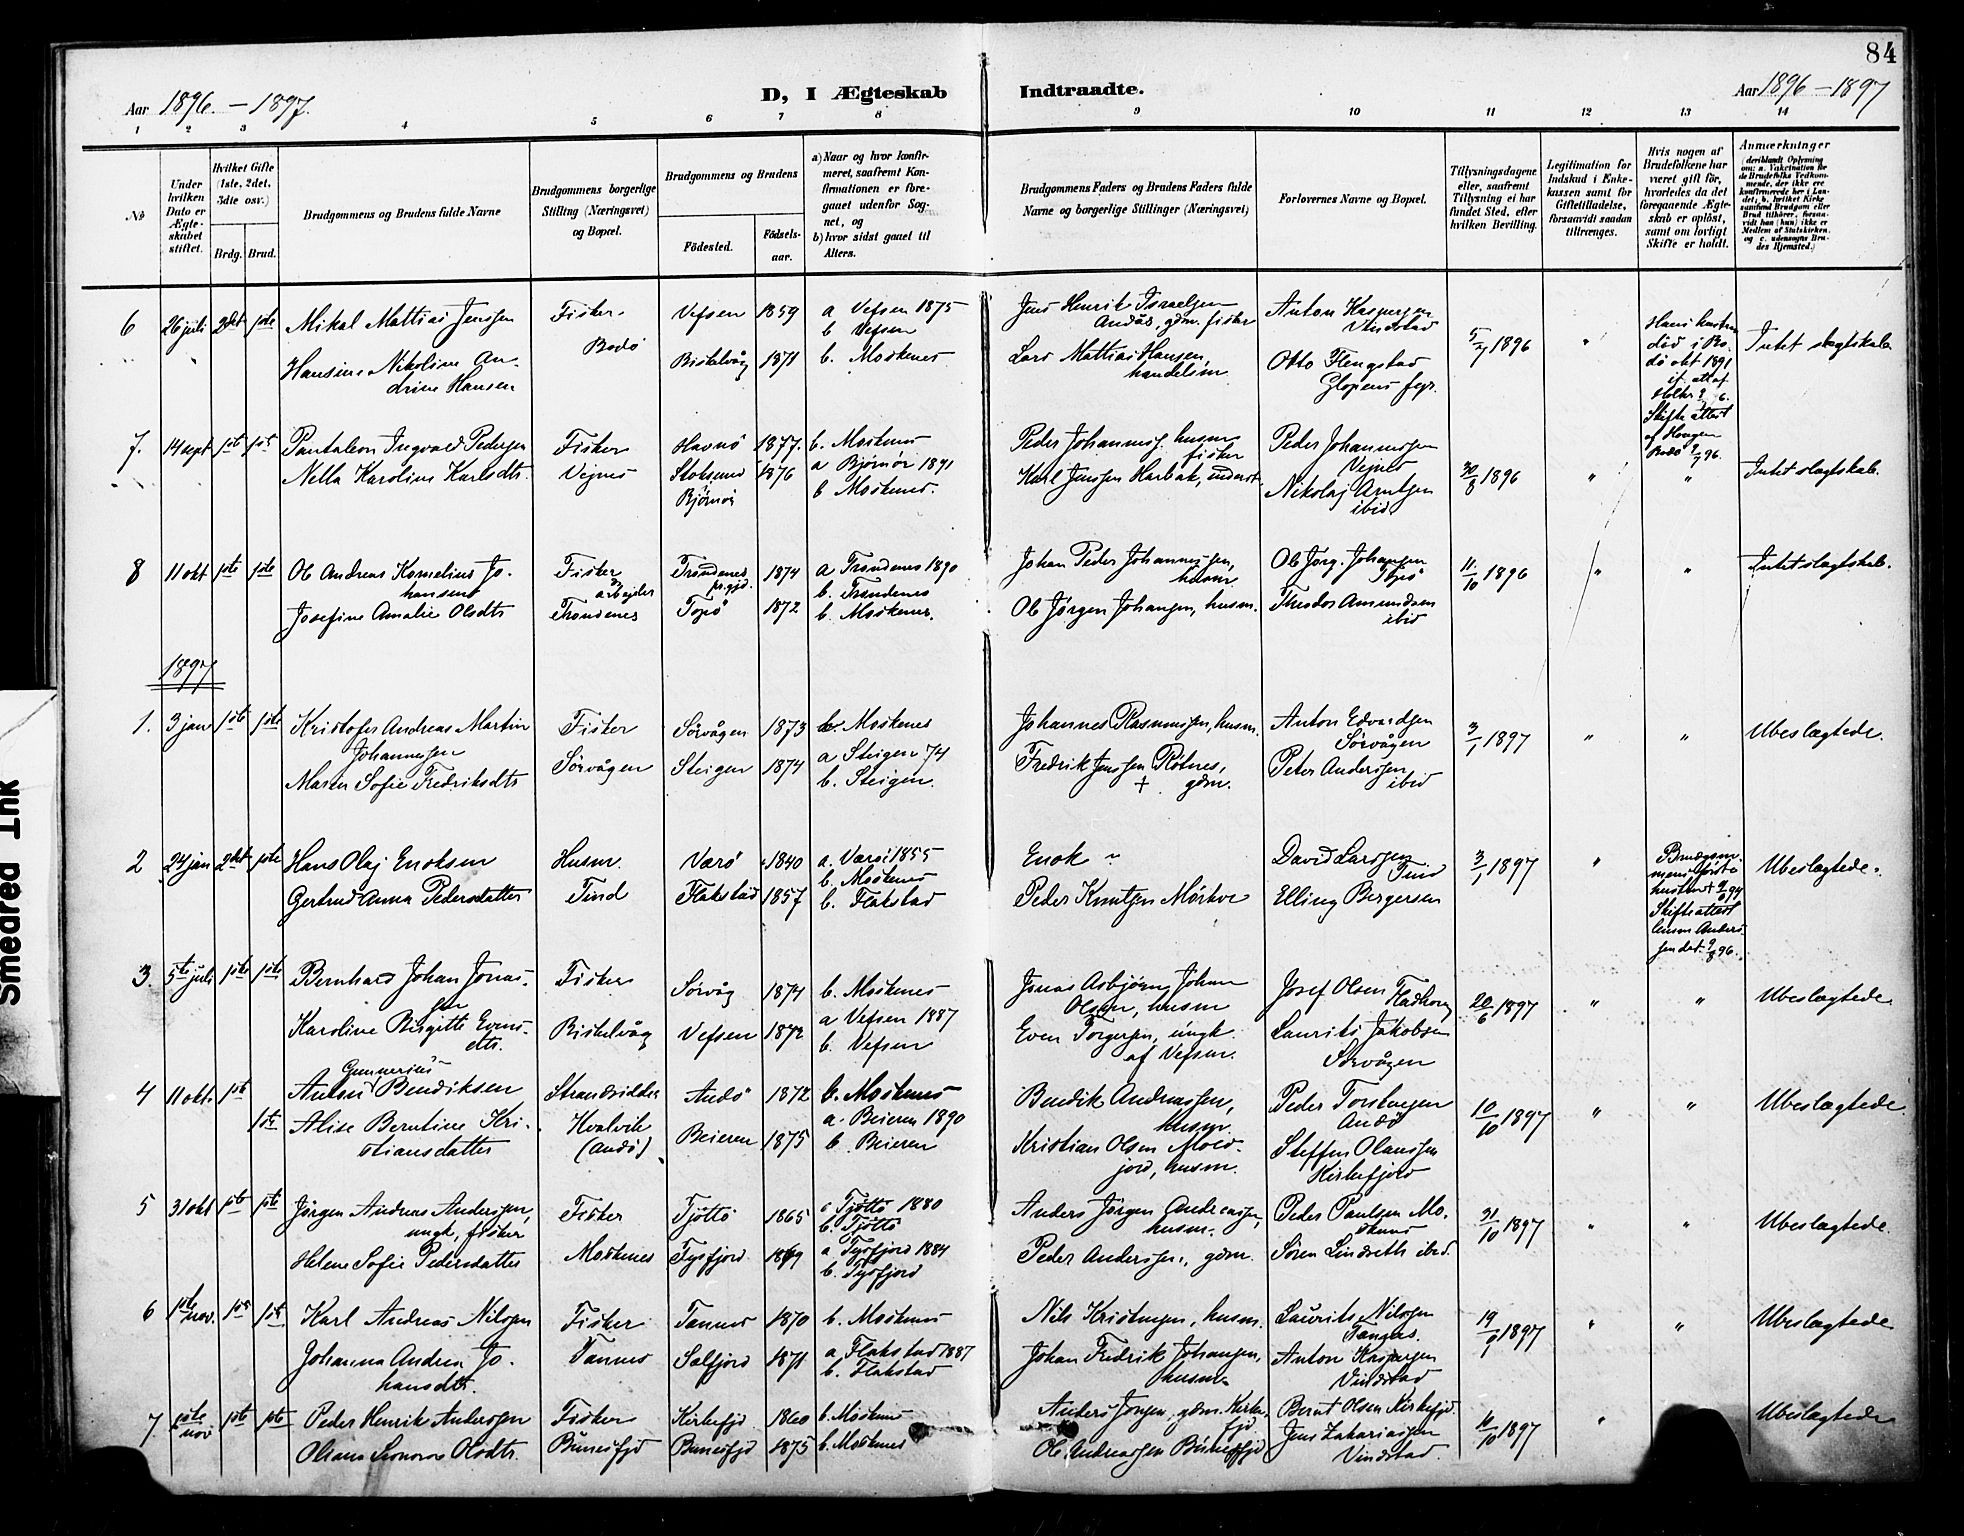 84
Aar 1896. – 1897.
D, I Ægteskab Indtraadte.
Aar 1896 – 1897
1 2 3 4 5 6 7 8 9 10 11 12 13 14
No
Under hvilken Dato er Ægteskabet stiftet.
Hvilket Gifte (1ste, 2det, 3dte osv.)
Brdg. Brud.
Brudgommens og Brudens fulde Navne
Brudgommens borgerlige Stilling (Næringsvei) og Bopæl.
Brudgommens og Brudens
Fødested.
Fødselsaar.
a) Naar og hvor konfirmeret, saafremt Konfirmationen er foregaaet udenfor Sognet, og
b) hvor sidst gaaet til Alters.
Brudgommens Faders og Brudens Faders fulde Navne og borgerlige Stillinger (Næringsvei)
Forlovernes Navne og Bopæl.
Tillysningsdagene eller, saafremt Tillysning ei har fundet Sted, efter hvilken Bevilling.
Legitimation for Indskud i Enkekassen samt for Giftetilladelse, forsaavidt saadan tiltrænges.
Hvis nogen af Brudefolkene har været gift før, hvorledes da det foregaaende Ægteskab er opløst, samt om lovligt Skifte er holdt.
Anmærkninger
6 26 juli 2det 1ste Mikal Mattias Jenssen Fisker Vefsen 1859 a Vefsen 1875 b Vefsen Jens Henrik Israelsen Andås, gdm. fisker Anton Kaspersen Vindstad 5/7 1896 " Intet slegtskab
Bodø
Hansine Nikoline Andrine Hansen Bistelvåg 1871 b. Moskenes Lars Mattias Hansen, handelsm. Otto Flengstad
7. 14 sept 1ste 1ste Pantaleon Ingvald Pedersen Fisker Havnø 1877. b. Moskenes Peder Johanness. husm fisker Peder Johannessen Vejnes 30/8 1896 " " Intet slagtskab.
Nella Karoline Karlsdtr. Vejnes Stoksund Bjørnør 1876 a Bjørnør 1891 b Moskenes. Karl Jenssen Harbak, inderst Nikolaj Arntsen ibid
8 11 okt 1ste 1ste Ole Andreas Kornelius Johansen Fisker arbejder Trondenes pr.gjd. 1874 a Trondenes 1890 b. Trondenes Johan Peder Johannessen, husm Ole Jørg. Johansen Topø 11/10 1896 " " Intet slagtskab.
Josefine Amalie Olsdtr Trondenes Topø 1872 b. Moskenes. Ole Jørgen Johansen, husm. Theodor Amundsen ibid
1897
1. 3 jan 1ste 1ste Kristofer Andreas Martin Johannessen Fisker Sørvågen 1873 b. Moskenes Johannes Rasmussen, husm. Anton Edvardsen Sørvågen 3/1 1897 " " Ubeslægtede.
Maren Sofie Fredriksdtr Sørvågen Steigen 1874 a Steigen 74 b. Steigen. Fredrik Jenssen Rotnes, + gdm. Peter Anderssen ibid
2 24 jan 2det 1ste Hans Olaj Enoksen Husm. Værø 1840 a. Værø 1855 b. Moskenes Enok " David Larssen Tind 3/1 1897 " Ubeslægtede.
Gertrud Anna Pedersdatter Tind Flakstad 1857 b. Flakstad Peder Knutsen Mørkve Elling Bergersen
3. 5te juli 1ste 1ste Bernhard Johan Jonassen Fisker Sørvåg 1874 b. Moskenes Jonas Asbjørn Johan Olsen, husm Josef Olsen 20/6 1897 " " Ubeslægtede
Karoline Birgitte Evensdtr. Bistelvåg Vefsen 1872 a Vefsen 1887 b. Vefsen Even Torgersen, ungk. af Vefsen. Laurits Jakobsen Sørvågen
4 11 okt. 1ste 1ste Anton Gunnerius Bendiksen Strandsidder Andø 1872 b. Moskenes Bendik Andreassen, husm Peder Torstensen Andø 10/10 1897 " " Ubeslægtede.
Alise Berntine Kristiansdatter Kvalvik (Andø) Beieren 1875 a. Beieren 1890 b. Beieren Kristian Olsen Moldjord, husm. Steffen Olaussen Kirkefjord
5 31 okt 1ste 1ste Jørgen Andreas Anderssen, ungk, fisker Fisker Tjøttø 1865 a Tjøttø 1880 b. Tjøttø Anders Jørgen Andreassen, husm. Peder Paulsen Moskenes 31/10 1897 " " Ubeslægtede.
Helene Sofie Pedersdatter Moskenes Tysfjord 1869 a Tysfjord 1884 b. Tysfjord Peder Anderssen, gdm. Søren Lindseth ibid.
6 1ste nov. 1ste 1ste Karl Andreas Nilssen Fisker Tannes 1870 b. Moskenes Nils Kristensen, husm. Laurits Nilssen Tangas. 19/9 1897 " " Ubeslægtede
Johanna Andrea Johansdtr. Tannes Selfjord 1871 a Flakstad 1887 b. Flakstad Johan Fredrik Johansen, husm. Anton Kaspersen Vindstad
7 1ste nov 1ste 1ste Peder Henrik Anderssen Fisker Kirkefjd 1860 b. Moskenes Anders Jonsen, gdm. Kirkefjd Bernt Olsen Kirkefjd. 10/10 1897 " Ubeslægtede
Olsana Leonora Olsdtr. Bunesfjd Bunesfjd 1875 b. Moskenes Ole Andreassen Bunesfjd Jens Zakariassen Vindstad.
Smeared Ink